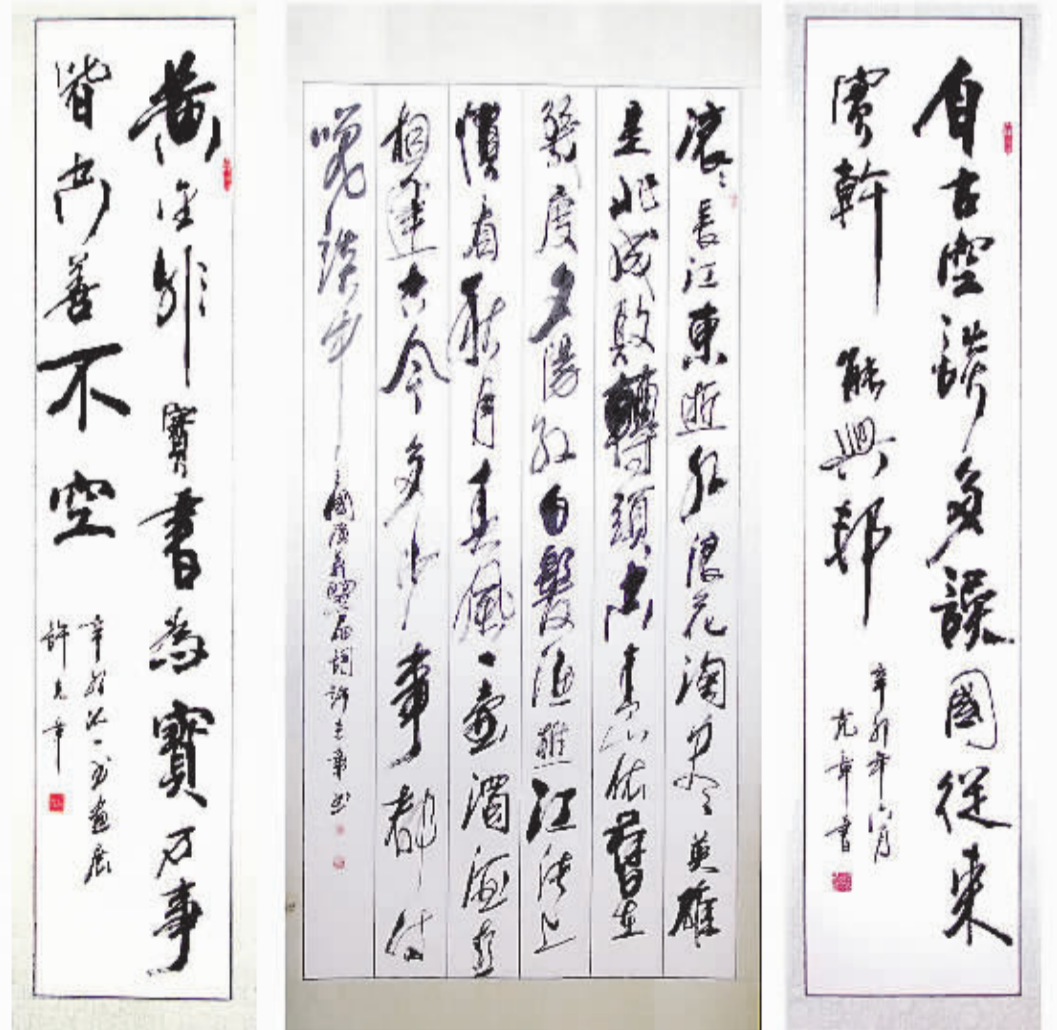 自古空談多誤國從來
實幹能興邦
辛卯年六月
克章書
滾滾長江東逝水浪花淘尽英雄
是非成敗轉頭空青山依舊在
幾度夕陽紅白髮漁樵江渚上
慣看秋月春風一壺濁酒喜
相逢古今多少事都付
笑談中
三國演義開篇詞許克章書
黃金非寶書為寶万事
皆空善不空
辛卯八一書畫展
許克章